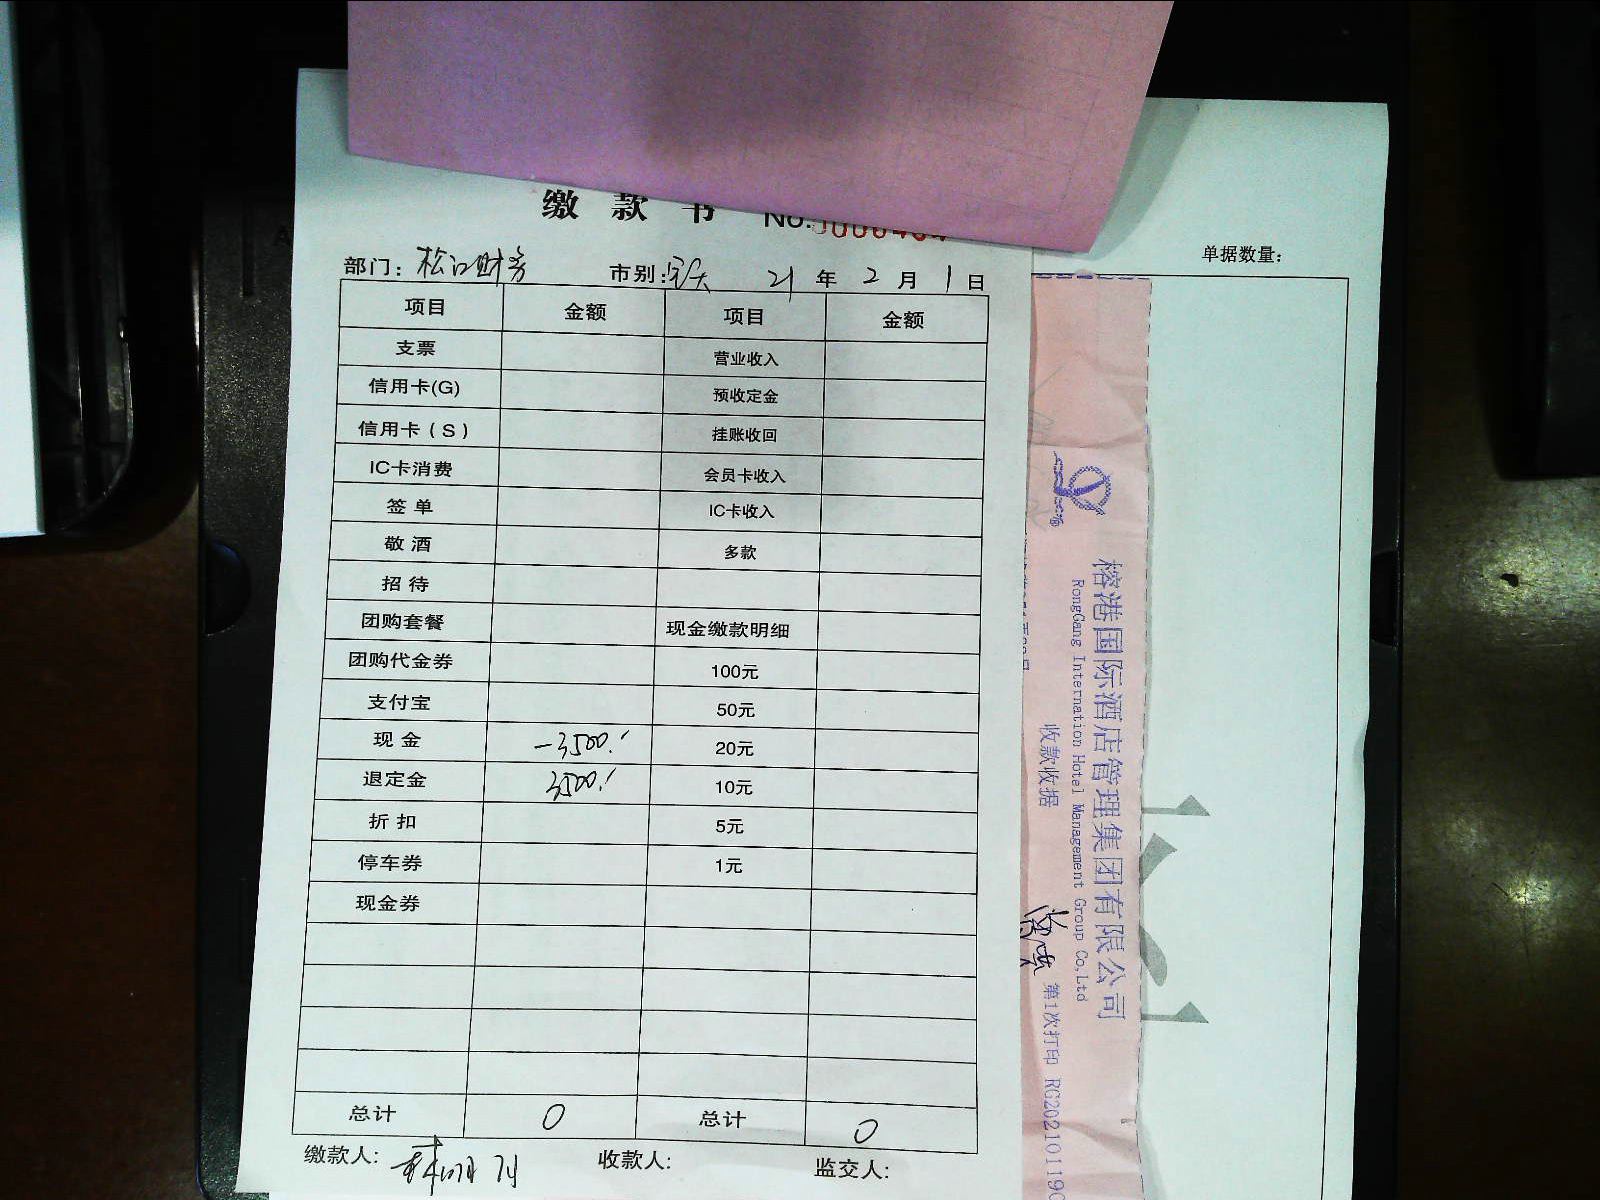 缴 款 书 No.
单据数量:
部门: 松江财务 市别: 21 年 2 月 1 日
项目 金额 项目 金额
支票 营业收入
信用卡(G) 预收定金
信用卡(S) 挂账收回
IC卡消费 会员卡收入
签单 IC卡收入
敬酒 多款
招待
团购套餐 现金缴款明细
团购代金券 100元
支付宝 50元
现金 -3500.- 20元
退定金 3500.- 10元
折扣 5元
停车券 1元
现金券
总计 0 总计 0
缴款人: 收款人: 监交人:
榕港国际酒店管理集团有限公司
RongGang Internation Hotel Management Group Co,Ltd
收款收据
第1次打印 RG202101190